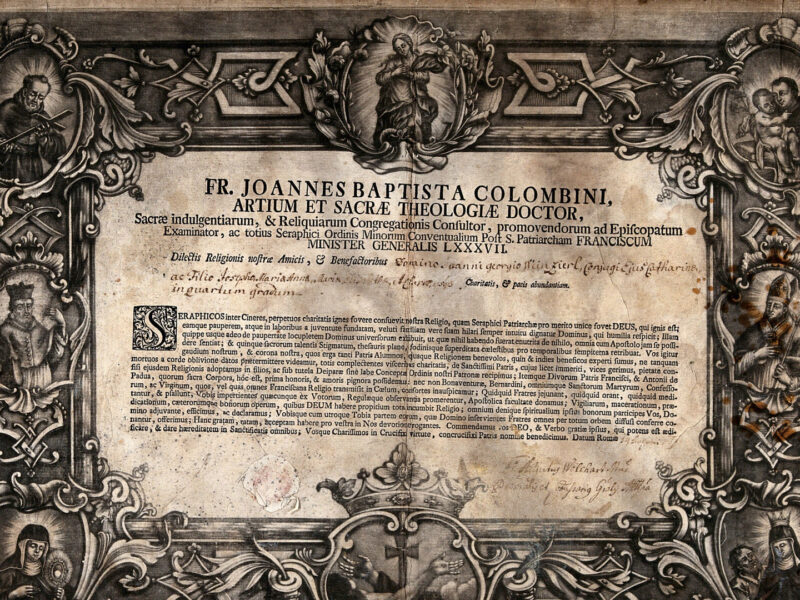 FR. JOANNES BAPTISTA COLOMBINI,
ARTIUM ET SACRÆ THEOLOGIÆ DOCTOR,
Sacræ indulgentiarum, & Reliquiarum Congregationis Consultor, promovendorum ad Episcopatum
Examinator, ac totius Seraphici Ordinis Minorum Conventualium Post S. Patriarcham FRANCISCUM
MINISTER GENERALIS LXXXVII.
Dilectis Religionis nostræ Amicis, & Benefactoribus Domino
ac Filio Josepho, Maria Anna, Charitatis, & pacis abundantiam.
in quartum gradum
SERAPHICOS inter Cineres, perpetuos charitatis ignes fovere consuevit nostra Religio, quam Seraphici Patriarchæ pro merito unice fovet DEUS, qui ignis est;
eamque pauperem, atque in laboribus a juventute fundatam, veluti similiam vere suam hilari semper intuitu dignatur Dominus, qui humilia respicit; Illam
quippe usque adeo de paupertate locupletem Dominus universorum exhibuit, ut quæ nihil habendo fuerat enutrita de nihilo, omnia cum Apostolo jam se possi-
dere sentiat; & quinque sacrorum talentis Stigmatum, thesauris plane, fodinisque superdicata cælestibus pro temporalibus sempiterna retribuat. Vos igitur
gaudium nostrum, & corona nostra, quos erga tanti Patria Alumnos, quosque Religionem benevolos, quis & indies beneficos experti sumus, ne tanquam
mortuos a corde oblivione datos prætermittere videamur, totis complectentes visceribus charitatis, de Sanctissimi Patris, cujus licet immeriti, vices gerimus, pietate con-
fisi ejusdem Religionis adoptamus in filios, ac sub tutela Deiparæ sine labe Conceptæ Ordinis nostri Patronæ recipimus; Itemque Divorum Patris Francisci, & Antonii de
Padua, quorum sacra Corpora, hoc est, prima honoris, & amoris pignora possidemus; nec non Bonaventuræ, Bernardini, omniumque Sanctorum Martyrum, Confesso-
rum, ac Virginum, quot, vel quas omnes Franciscana Religio transmisit in Cælum, consortes inauspicamur; Quidquid Fratres jejunant, quidquid orant, quidquid medi-
tantur, & psallunt; Vobis impertientes quæcunque ex Votorum, Regulæque observantia promerentur, Apostolica facultate donamus; Vigiliarum, macerationum, præ-
dicationum, cæterorumque bonorum operum, quibus DEUM habere propitium tota incumbit Religio; omnium denique spiritualium ipsius bonorum participes Vos, Do-
mino adjuvante, efficimus, ac declaramus; Vobisque cum utroque Tobia partem eorum, quæ Domino inservientes Fratres omnes per totum orbem diffusi conferre co-
nantur, offerimus; Hanc gratam, ratam, acceptam habere pro vestra in Nos devotione rogantes. Commendamus vos DEO, & Verbo gratiæ ipsius, qui potens est ædi-
ficare, & dare hæreditatem in Sanctificatis omnibus; Vosque Charissimos in Crucifixi virtute, concrucifixi Patris nomine benedicimus. Datum Romæ